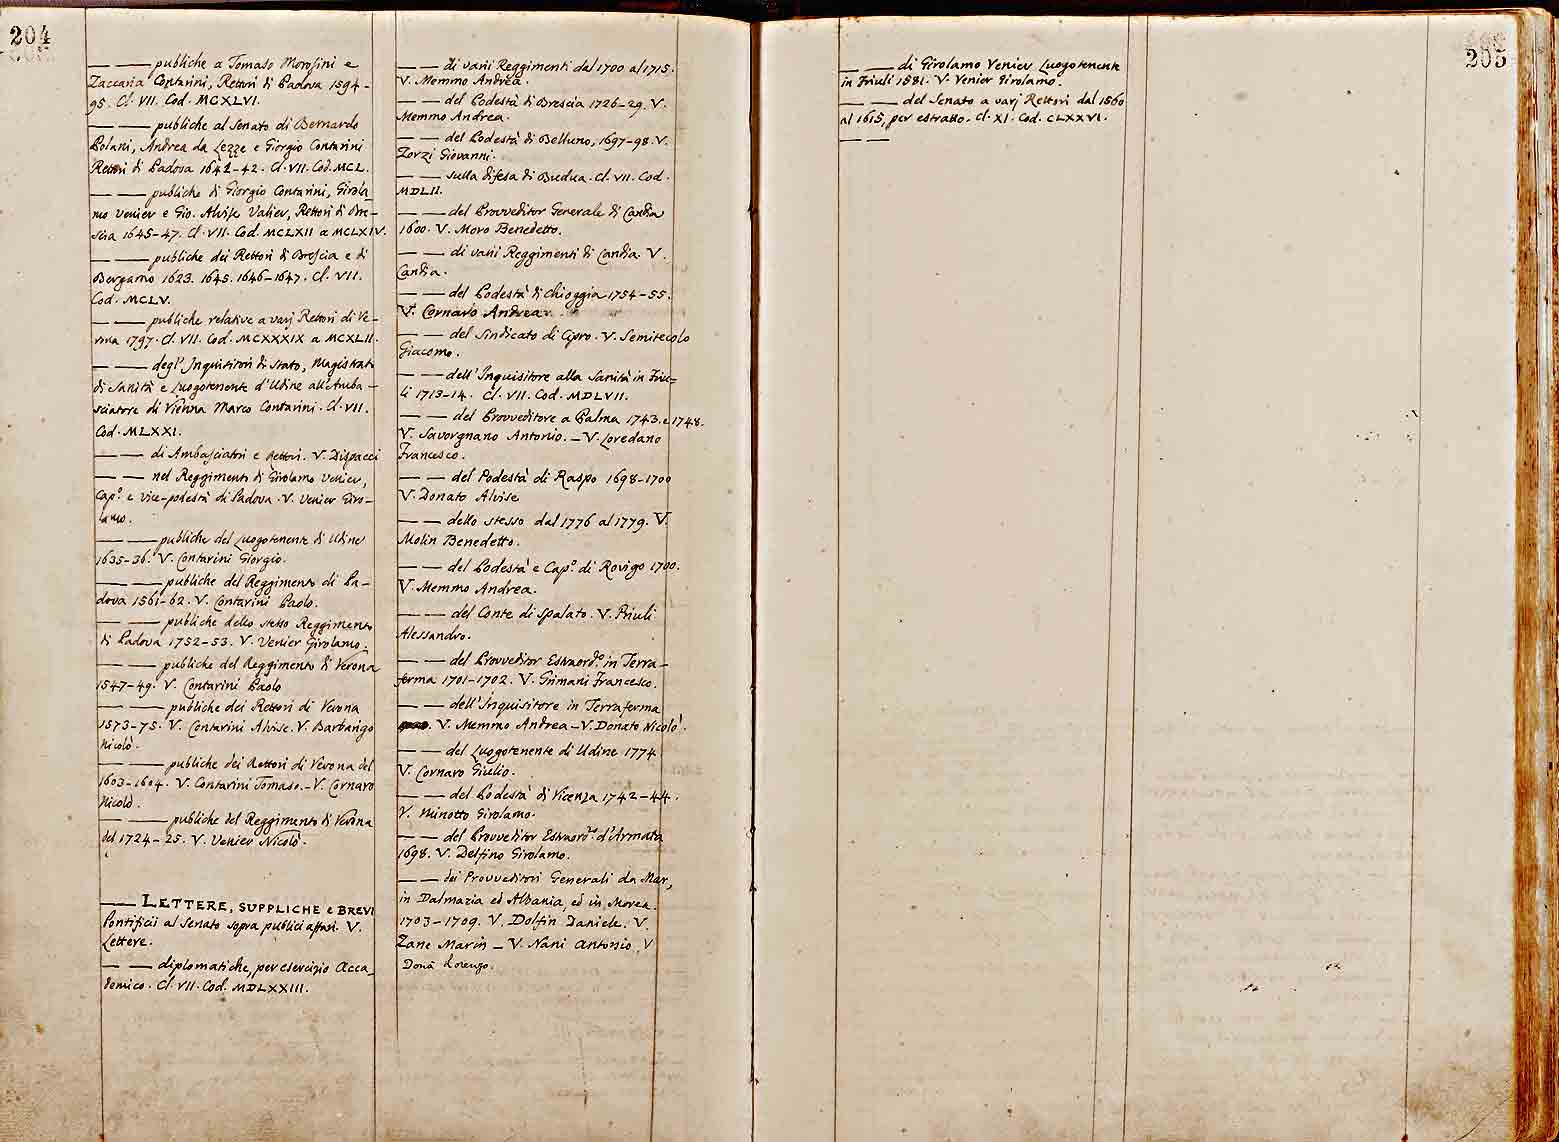 204
— — publiche a Tomaso Morosini e
Zaccaria Contarini, Rettori di Padova 1594-
95. Cl. VII. Cod. MCXLVI.
— — publiche al Senato di Bernardo
Polani, Andrea da Lezze e Giorgio Contarini
Rettori di Padova 1641-42. Cl. VII. Cod. MCL.
— — publiche di Giorgio Contarini, Girola-
mo Venier e Gio. Alvise Valier, Rettori di Bre-
scia 1645-47. Cl. VII. Cod. MCLXII a MCLXIV.
— — publiche dei Rettori di Brescia e di
Bergamo 1623. 1645. 1646-1647. Cl. VII.
Cod. MCLV.
— — publiche relative a varj Rettori di Ve-
rona 1797. Cl. VII. Cod. MCXXXIX a MCXLII.
— — degl'Inquisitori di Stato, Magistrato
di Sanità e Luogotenente d'Udine all'Amba-
sciatore di Vienna Marco Contarini. Cl. VII.
Cod. MLXXI.
— — di Ambasciatori e Rettori. V. Dispacci
— — nel Reggimento di Girolamo Venier,
Cap.º e vice-podestà di Padova. V. Venier Giro-
lamo.
— — publiche del Luogotenente di Udine
1635-36. V. Contarini Giorgio.
— — publiche del Reggimento di Pa-
dova 1561-62. V. Contarini Paolo.
— — publiche dello stesso Reggimento
di Padova 1752-53. V. Venier Girolamo.
— — publiche del Reggimento di Verona
1547-49. V. Contarini Paolo
— — publiche dei Rettori di Verona
1573-75. V. Contarini Alvise. V. Barbarigo
Nicolò.
— — publiche dei Rettori di Verona del
1603-1604. V. Contarini Tomaso. – V. Cornaro
Nicolò.
— — publiche del Reggimento di Verona
del 1724-25. V. Venier Nicolò.
— LETTERE, SUPPLICHE e BREVI
Pontificii al Senato sopra publici affari. V.
Lettere.
— — diplomatiche, per esercizio Acca-
demico. Cl. VII. Cod. MDLXXIII.
— — di varii Reggimenti dal 1700 al 1715.
V. Memmo Andrea.
— — del Podestà di Brescia 1726-29. V.
Memmo Andrea.
— — del Podestà di Belluno, 1697-98. V.
Zorzi Giovanni.
— — sulla difesa di Budua. Cl. VII. Cod.
MDLII.
— — del Provveditor Generale di Candia
1600. V. Moro Benedetto.
— — di varii Reggimenti di Candia. V.
Candia.
— — del Podestà di Chioggia 1754-55.
V. Cornaro Andrea.
— — del Sindicato di Cipro. V. Semitecolo
Giacomo.
— — dell'Inquisitore alla Sanità in Friu-
li 1713-14. Cl. VII. Cod. MDLVII.
— — del Provveditore a Palma 1743. e 1748.
V. Savorgnano Antonio. – V. Loredano
Francesco.
— — del Podestà di Raspo 1698-1700
V. Donato Alvise
— — dello stesso dal 1776 al 1779. V.
Molin Benedetto.
— — del Podestà e Cap.º di Rovigo 1700.
V. Memmo Andrea.
— — del Conte di Spalato. V. Priuli
Alessandro.
— — del Provveditor Estraord.º in Terra-
ferma 1701-1702. V. Grimani Francesco.
— — dell'Inquisitore in Terraferma
V. Memmo Andrea – V. Donato Nicolò.
— — del Luogotenente di Udine 1774
V. Cornaro Giulio.
— — del Podestà di Vicenza 1742-44.
V. Minotto Girolamo.
— — del Provveditor Estraord.º d'Armata
1698. V. Delfino Girolamo.
— — dei Provveditori Generali da Mar,
in Dalmazia ed Albania, ed in Morea.
1703-1709. V. Dolfin Daniele. V.
Zane Marin – V. Nani Antonio. V
Donà Lorenzo.
205
— — di Girolamo Venier Luogotenente
in Friuli 1581. V. Venier Girolamo.
— — del Senato a varj Rettori dal 1560
al 1615, per estratto. Cl. XI. Cod. CLXXVI.
— —